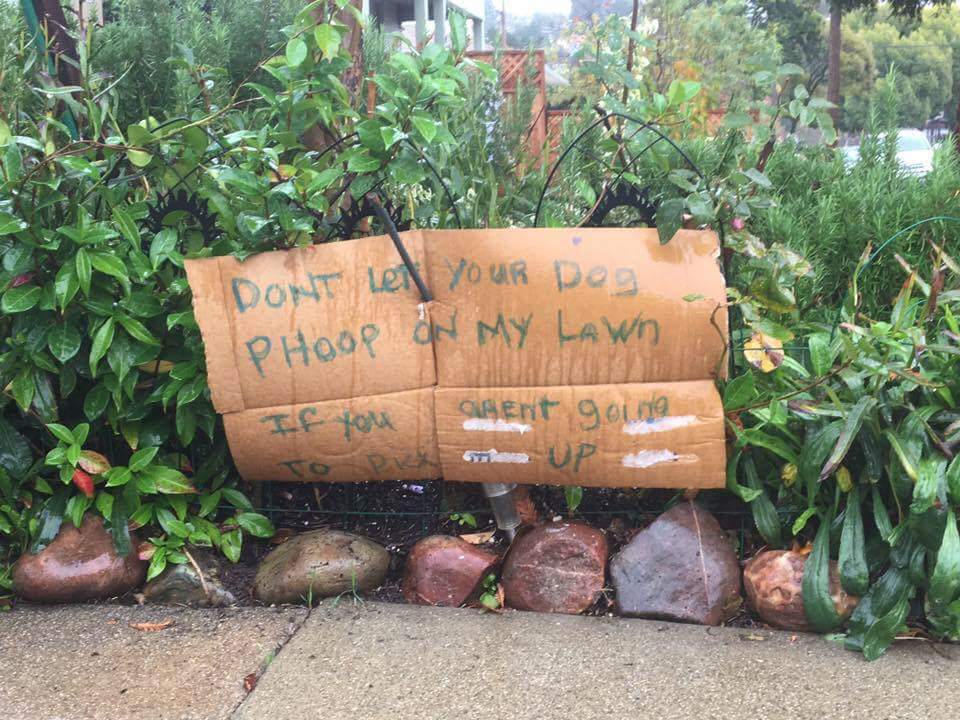 DONT LET YOUR Dog
PHOOP ON MY LAWn
IF YOU ARENT goIng
TO PICK UP